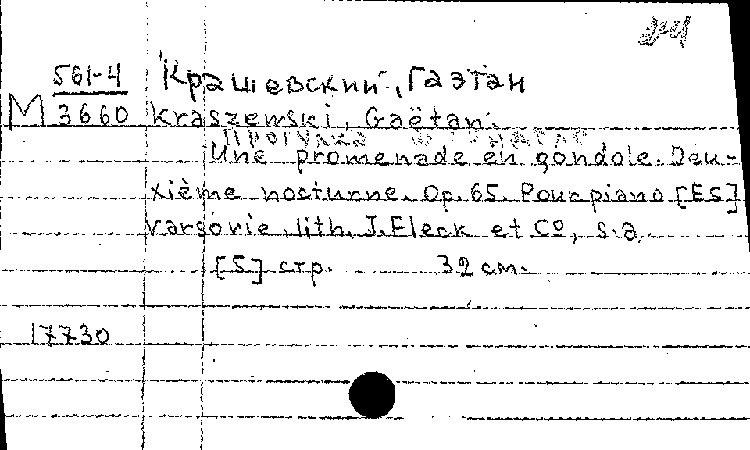 561-4
М 3660
Крашевский, Гаэтан
Kraszemski, Gaëtan.
Прогулка
Une promenade en gondole. Deu-
xième nocturne. Op. 65. Pour piano [ES]
Varsovie, lith. J. Fleck et Cº, s.a.
[5] стр. 32 см.
17730